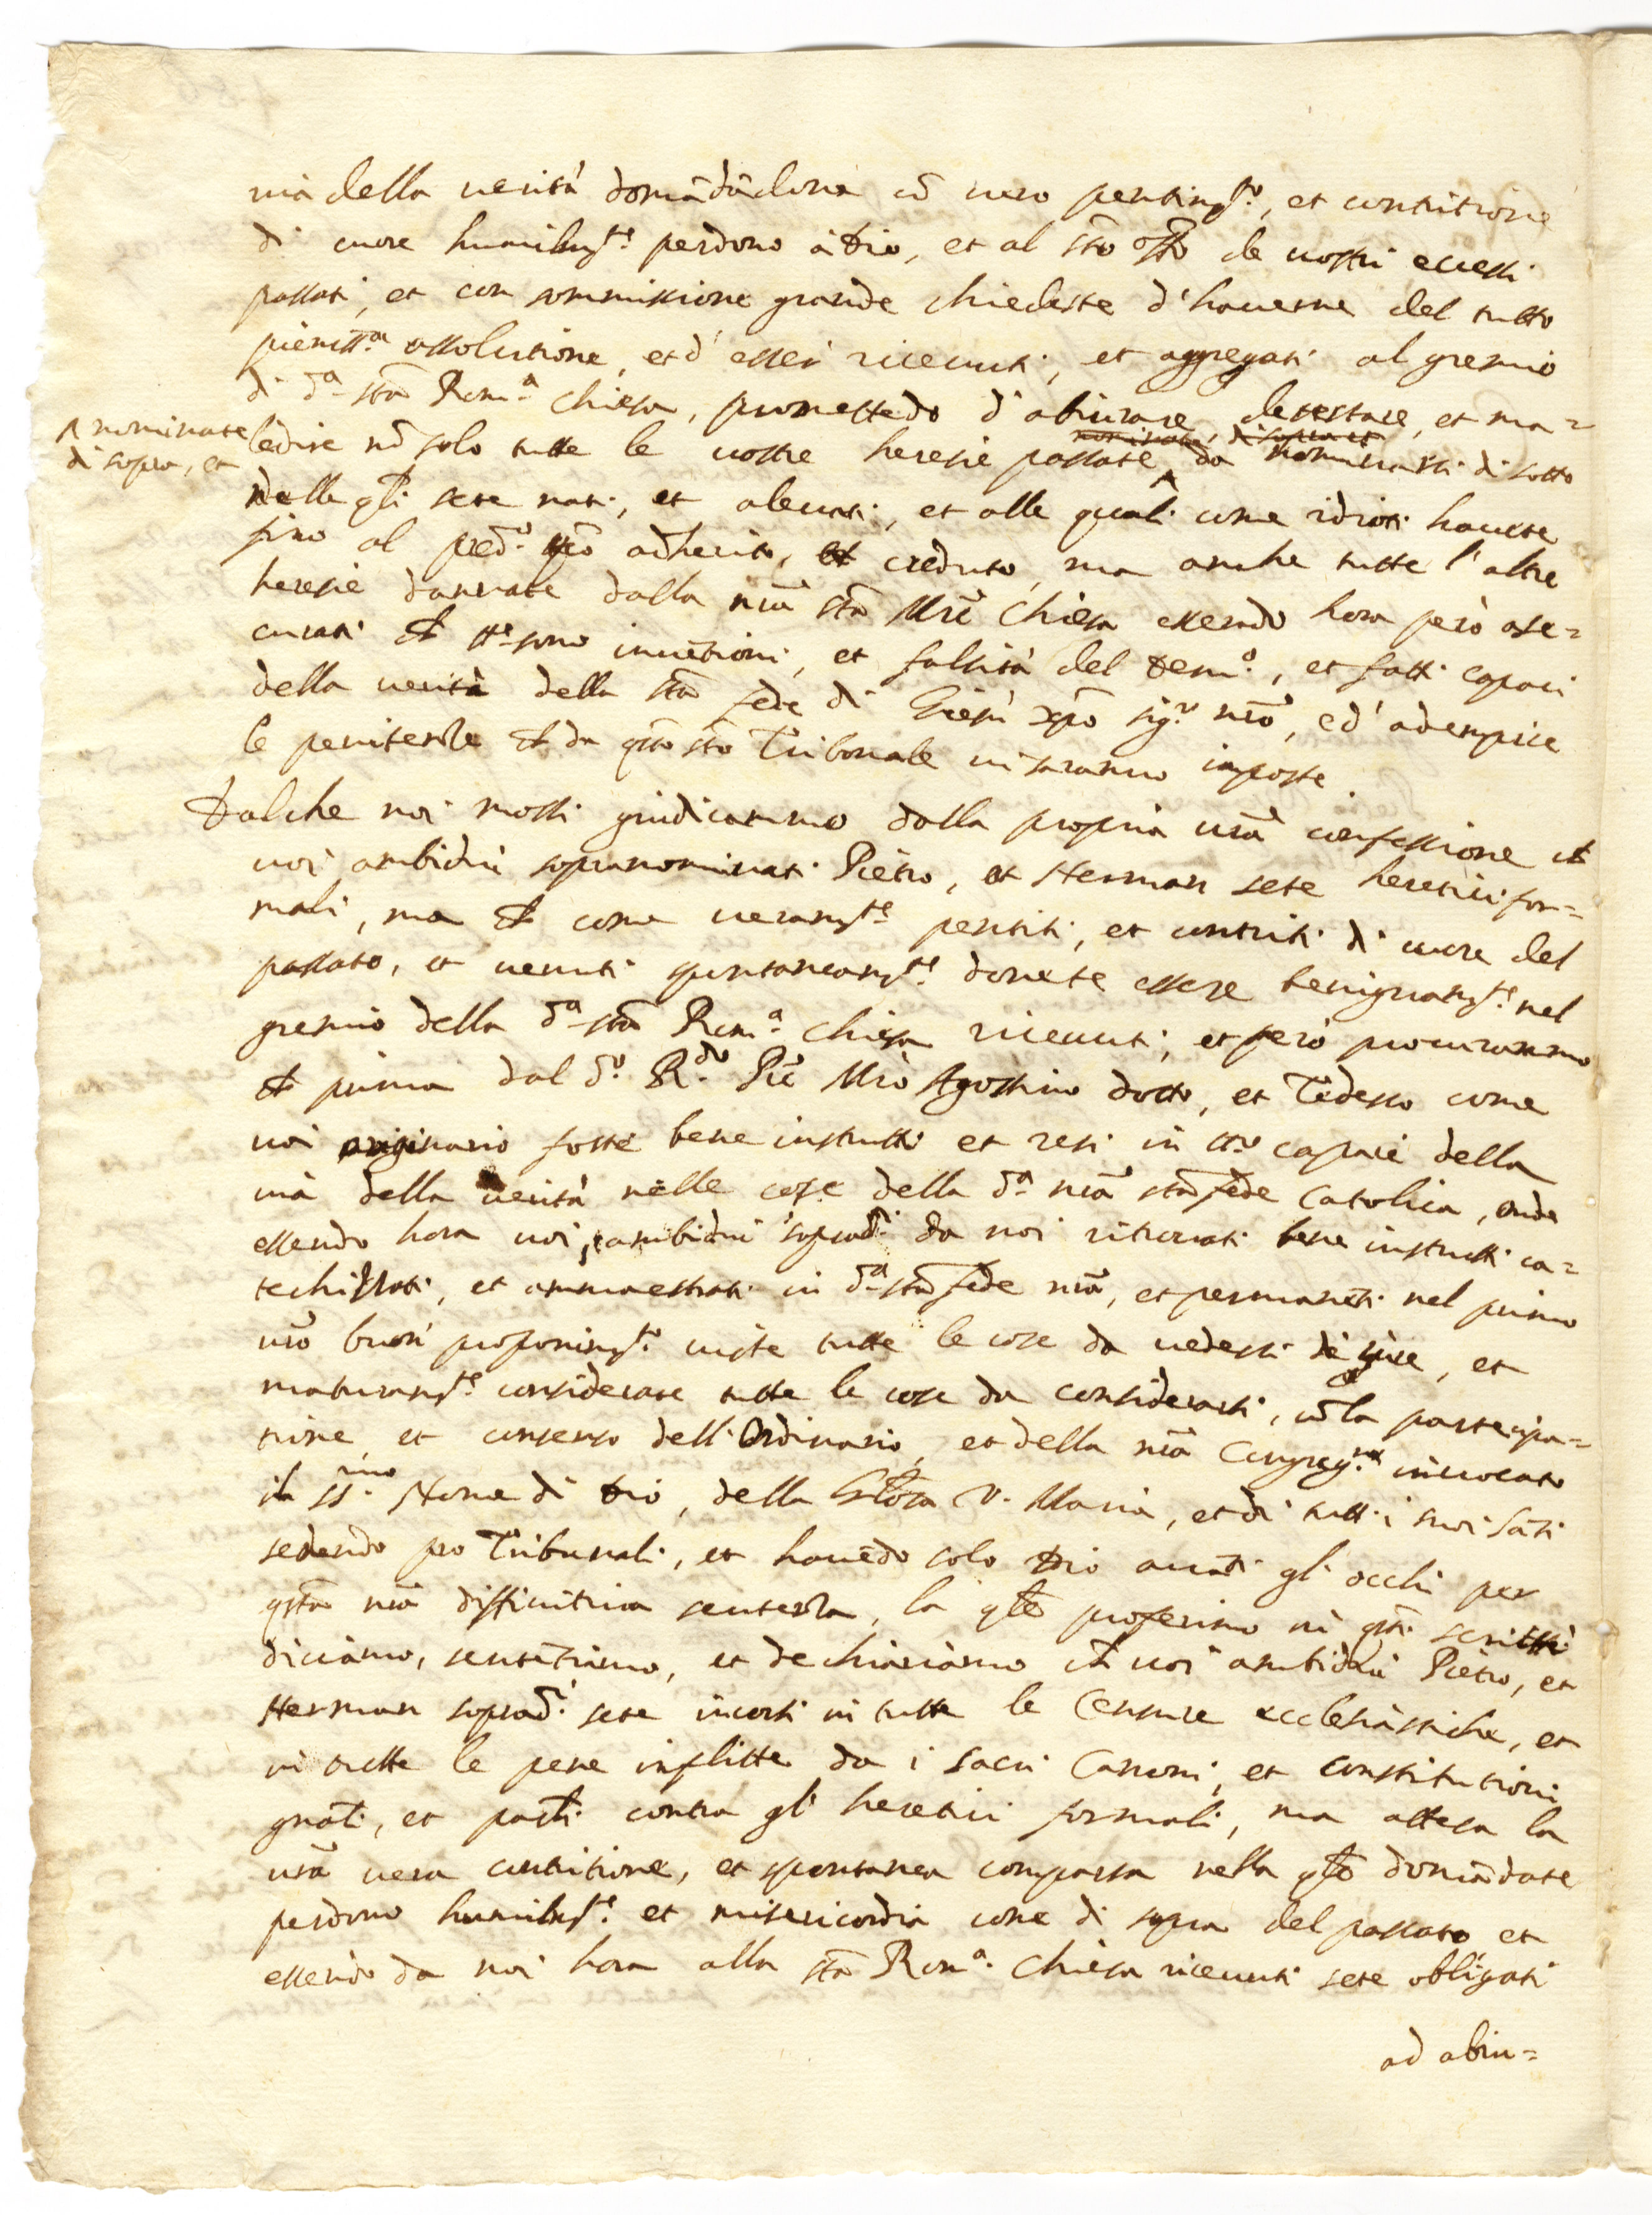 via della verità domãdãdone cõ vero pentimto, et contritione
di cuore humilmte perdono à Dio, et al sto offo de vostri eccessi
passati, et con sommissione grande chiedeste d'haverne del tutto
pienissa assolutione, et d'esser ricevuti, et aggregati al gremio
di da sta Roma Chiesa, promettẽdo d'abiurare, detestare, et ma=
ledire nõ solo tutte le vostre heresie passate da nominarsi di sotto
nominate di sopra, et
nelle qli sete nati, et alevati, et alle quali come idioti haveste
fino al predo adherito, et creduto, ma anche tutte l'altre
heresie dannate dalla nra sta Mre Chiesa essendo hora però ase=
curati ch sono invẽtioni, et falsità del demo, et fatti capaci
della verità della sta fede di Giesù Xpo sigr nro, ed'adempire
le penitenze ch da qsto sto Tribunale vi saranno imposte.
Dalche noi mossi giudicammo dalla propria vra confessione ch
voi ambidui sopranominati Pietro, et Herman sete heretici for=
mali, ma ch come veramte pentiti, et contriti di cuore del
passato, et venuti spontaneamte dovete essere benignamte nel
gremio della da sta Roma Chiesa ricevuti, et però procurammo
ch prima dal do Rdo Pre Mro Agostino dotto, et Tedesco come
voi originario foste bene instrutti et resi in capaci della
via della verità nelle cose della da nra sta fede Catolica, onde
essendo hora voi, ambidui sopradi da noi ritrovati bene instrutti ca=
techissati, et ammaestrati in da sta fede nra, et permanẽti nel primo
vro buon proponimto viste tutte le cose da vedersi de iure, et
maturamte considerate tutte le cose da considerarsi, cõ la partecipa=
tione, et consenso dell'Ordinario, et della nra Congregne invocato
il SSmo Nome di Dio, della Glosa V. Maria, et di tutti i suoi Sãti
sedendo pro Tribunali, et havẽdo solo Dio avãti gl'occhi per
qsta nra diffinitiva sentenza, la qle proferimo in qsti scritti
diciamo, sentẽtiamo, et dechiariamo ch voi ambidui Pietro, et
Herman sopradi sete incorsi in tutte le Censure ecclesiastiche, et
in tutte le pene inflitte da i sacri Canoni, et constitutioni
gnali, et parti contra gl'heretici formali, ma attesa la
vra vera contritione, et spontanea comparsa nella qle domãdate
perdono humilmte et misericordia come di sopra del passato et
essendo da noi hora alla sta Roma Chiesa ricevuti sete obligati
ad abiu=